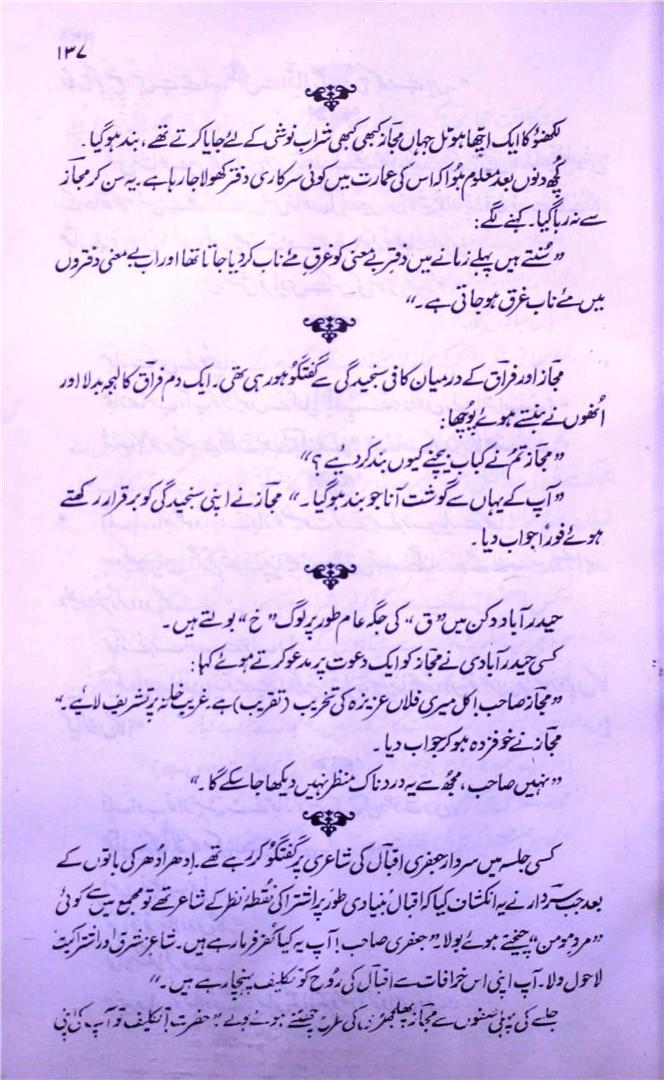 ۱۳۷
لکھنؤ کا ایک اچھا ہوٹل جہاں مجازؔ کبھی کبھی شراب نوشی کے لئے جایا کرتے تھے، بند ہو گیا۔
کچھ دنوں بعد معلوم ہوا کہ اس کی عمارت میں کوئی سرکاری دفتر کھولا جا رہا ہے، یہ سن کر مجاز
سے نہ رہا گیا۔ کہنے لگے:
”سُنتے ہیں پہلے زمانے میں دفترِ بے معنی کو غرقِ مئے ناب کر دیا جاتا تھا اور اب بے معنی دفتروں
میں مئے ناب غرق ہو جاتی ہے۔“
مجاز اور فراق کے درمیان کافی سنجیدگی سے گفتگو ہو رہی تھی۔ ایک دم فراق کا لہجہ بدلا اور
انھوں نے ہنستے ہوئے پوچھا:
”مجاز تم نے کباب بیچنے کیوں بند کر دیے؟“
”آپ کے یہاں سے گوشت آنا جو بند ہو گیا۔“ مجازؔ نے اپنی سنجیدگی کو برقرار رکھتے
ہوئے فوراً جواب دیا۔
حیدر آباد دکن میں ”ق“ کی جگہ عام طور پر لوگ ”خ“ بولتے ہیں۔
کسی حیدر آبادی نے مجازؔ کو ایک دعوت پر مدعو کرتے ہوئے کہا:
”مجازؔ صاحب! کل میری فلاں عزیزہ کی تخریب (تقریب) ہے۔ غریب خانہ پر تشریف لائیے۔“
مجازؔ نے خوفزدہ ہو کر جواب دیا۔
”نہیں صاحب، مجھ سے یہ دردناک منظر نہیں دیکھا جا سکے گا۔“
کسی جلسہ میں سردار جعفری اقبالؔ کی شاعری پر گفتگو کر رہے تھے۔ اِدھر اُدھر کی باتوں کے
بعد جب سردار نے یہ انکشاف کیا کہ اقبال بُنیادی طور پر اشتراکی نقطۂ نظر کے شاعر تھے تو مجمع میں سے کوئی
”مردِ مومن“ چیختے ہوئے بولا۔ ”جعفری صاحب! آپ یہ کیا کفر فرما رہے ہیں۔ شاعرِ مشرق اور اشتراکیت
لاحول ولا۔ آپ اپنی اس خرافات سے اقبالؔ کی رُوح کو تکلیف پہنچا رہے ہیں۔“
جلسے کی پہلی صفوں سے مجازؔ پھلجھڑی کی طرح چھٹتے ہوئے بولے ”حضرت! تکلیف تو آپ کی اپنی